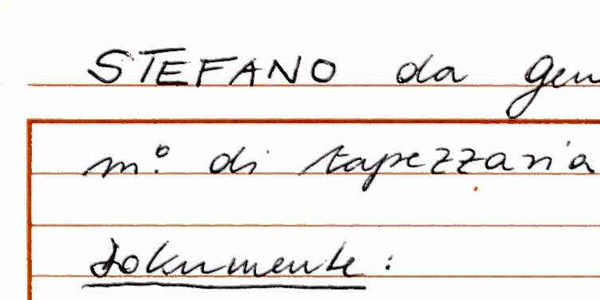 STEFANO da Gen
m.º di tapezzaria
Dokumente: